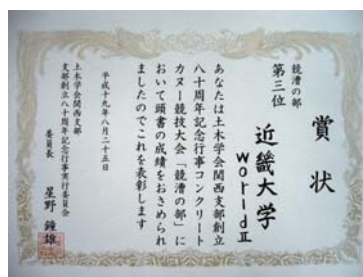 賞状
競漕の部
第三位
近畿大学
WorldⅡ
あなたは土木学会関西支部創立
八十周年記念行事コンクリート
カヌー競技大会「競漕の部」に
おいて頭書の成績をおさめられ
ましたのでこれを表彰します
平成十九年八月二十五日
土木学会関西支部
支部創立八十周年記念行事実行委員会
委員長 星野鐘雄